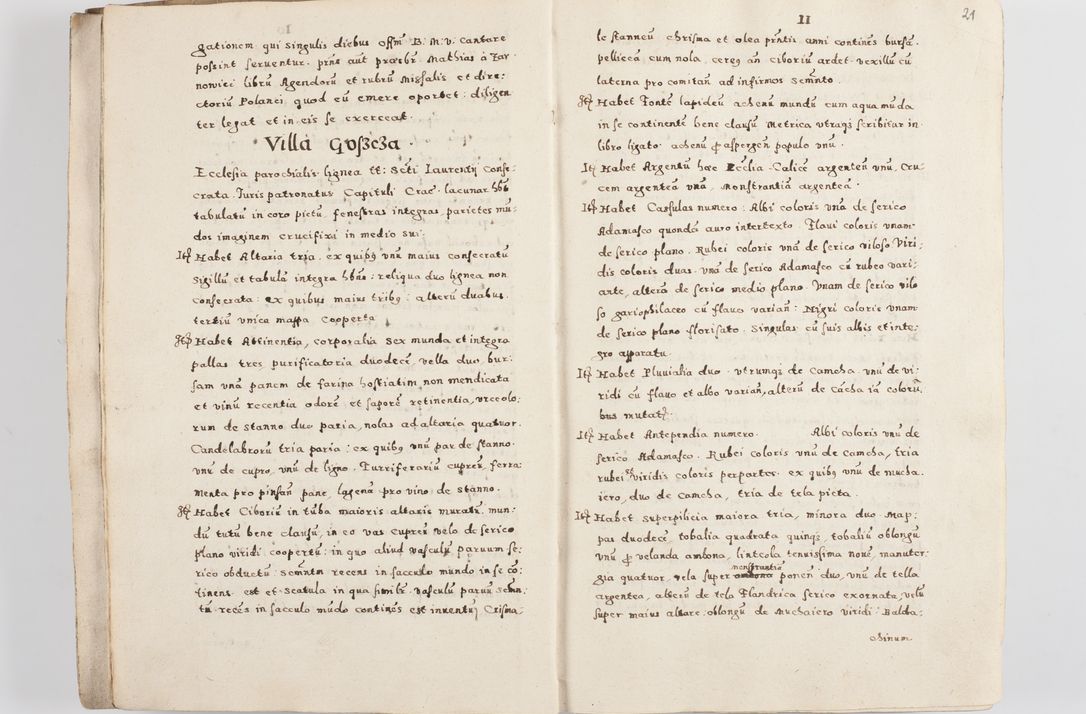 gationem qui singulis diebus offm B. M. v. cantare
possint seruentur. prns aut praesbr Mathias à Zar
nowiec librũ Agendorũ et rubrũ Missalis et dire:
ctoriũ Polanci quod eũ emere oportet: diligen
ter legat et in eis se exerceat.
Villa Goszcza.
Ecclesia parochialis lignea tt: Scti Laurentij conse:
crata. Iuris patronatus Capituli Crac. lacunar hñs
tabulatũ in coro pictũ, fenestras integras, parietes mu:
dos imaginem crucifixi in medio sui.
Itẽ Habet Altaria tria. ex quibq vnũ maius consecratũ
sigillũ et tabulã integrã hñs: reliqua duo lignea non
consecrata: ex quibus maius tribq: alterũ duabus.
tertiũ vnica mappa cooperta
Itẽ Habet Attinentia, corporalia sex munda et integra
pallas tres purificatoria duodecẽ. vella duo, bur:
sam vnã panem de farina hostiatim non mendicata
et vinũ recentia odorẽ et saporẽ retinentia, vrceolo:
rum de stanno duo paria, nolas ad altaria quatuor.
Candelabrorũ tria paria: ex quibq vnũ par de stanno.
vnũ de cupro, vnũ de ligno. Turriferariũ cupreũ, ferra
menta pro pinsen pane, lagenã pro vino de stanno.
Itẽ Habet Ciboriũ in tũba maioris altaris muratũ, mun:
dũ tutũ bene clausũ, in eo vas cupreũ velo de serico
plano viridi coopertũ: in quo aliud vasculũ paruum se:
rico obductũ: Semñtm recens in sacculo mundo in se cõ:
tinens. est et Scatula in qua simile. vasculũ paruũ semñ
tũ recẽs in sacculo mũdo continẽs est inuentũ, Crisma:
II
21
le stanneũ chrisma et olea prñtis anni continẽs bursã.
pelliceã cum nola, cereq añ ciboriũ ardet. vexillũ cũ
laterna pro comitañ ad infirmos semñto.
Itẽ Habet Fontẽ lapideũ achenũ mundũ cum aqua mũda
in se continentẽ bene clausũ Metrica vtraqz scribitur in.
libro ligato. achenũ p aspergeñ populo vnũ.
Itẽ Habet Argentũ hoc Ecclia. Calicẽ argenteũ vnũ, Cru
cem argenteã vnã, Monstrantiã argenteã.
Itẽ Habet Casulas numero: Albi coloris vnã de serico
Adamasco quondã auro intertexto. Flaui coloris vnam
de serico plano. Rubei coloris vnã de serico viloso. Viri:
dis coloris duas. vnã de serico Adamasco cũ rubeo vari:
ante, alterã de serico medio plano. Vnam de serico vilo
so gariophilaceo cũ flauo variañ: Nigri coloris vnam
de serico plano florisato. singulas cũ suis albis et inte:
gro apparatu.
Itẽ Habet Pluuialia duo. vtrumqz de Camcha. vnũ de vi:
ridi cũ flauo et albo variañ, alterũ de Cãcha iã colori
bus mutat.
Itẽ Habet Antependia numero. Albi coloris vnũ de
serico Adamasco. Rubei coloris vnũ de camcha, tria
rubei et viridis coloris perpartes. ex quibq vnũ de mucha
iero, duo de camcha, tria de tela picta.
Itẽ Habet superpilicia maiora tria, minora duo. Map:
pas duodecẽ, tobalia quadrata quinqz, tobaliũ oblongũ
vnũ p velanda ambona, linteola tenuissima nouẽ, manuter:
gia quatuor, vela super monstrantiã poneñ duo, vnũ de tella
argentea, alterũ de tela Flandrica serico exornata, velũ
super maius altare oblongũ de Muchaiero viridi. Balda:
chinum